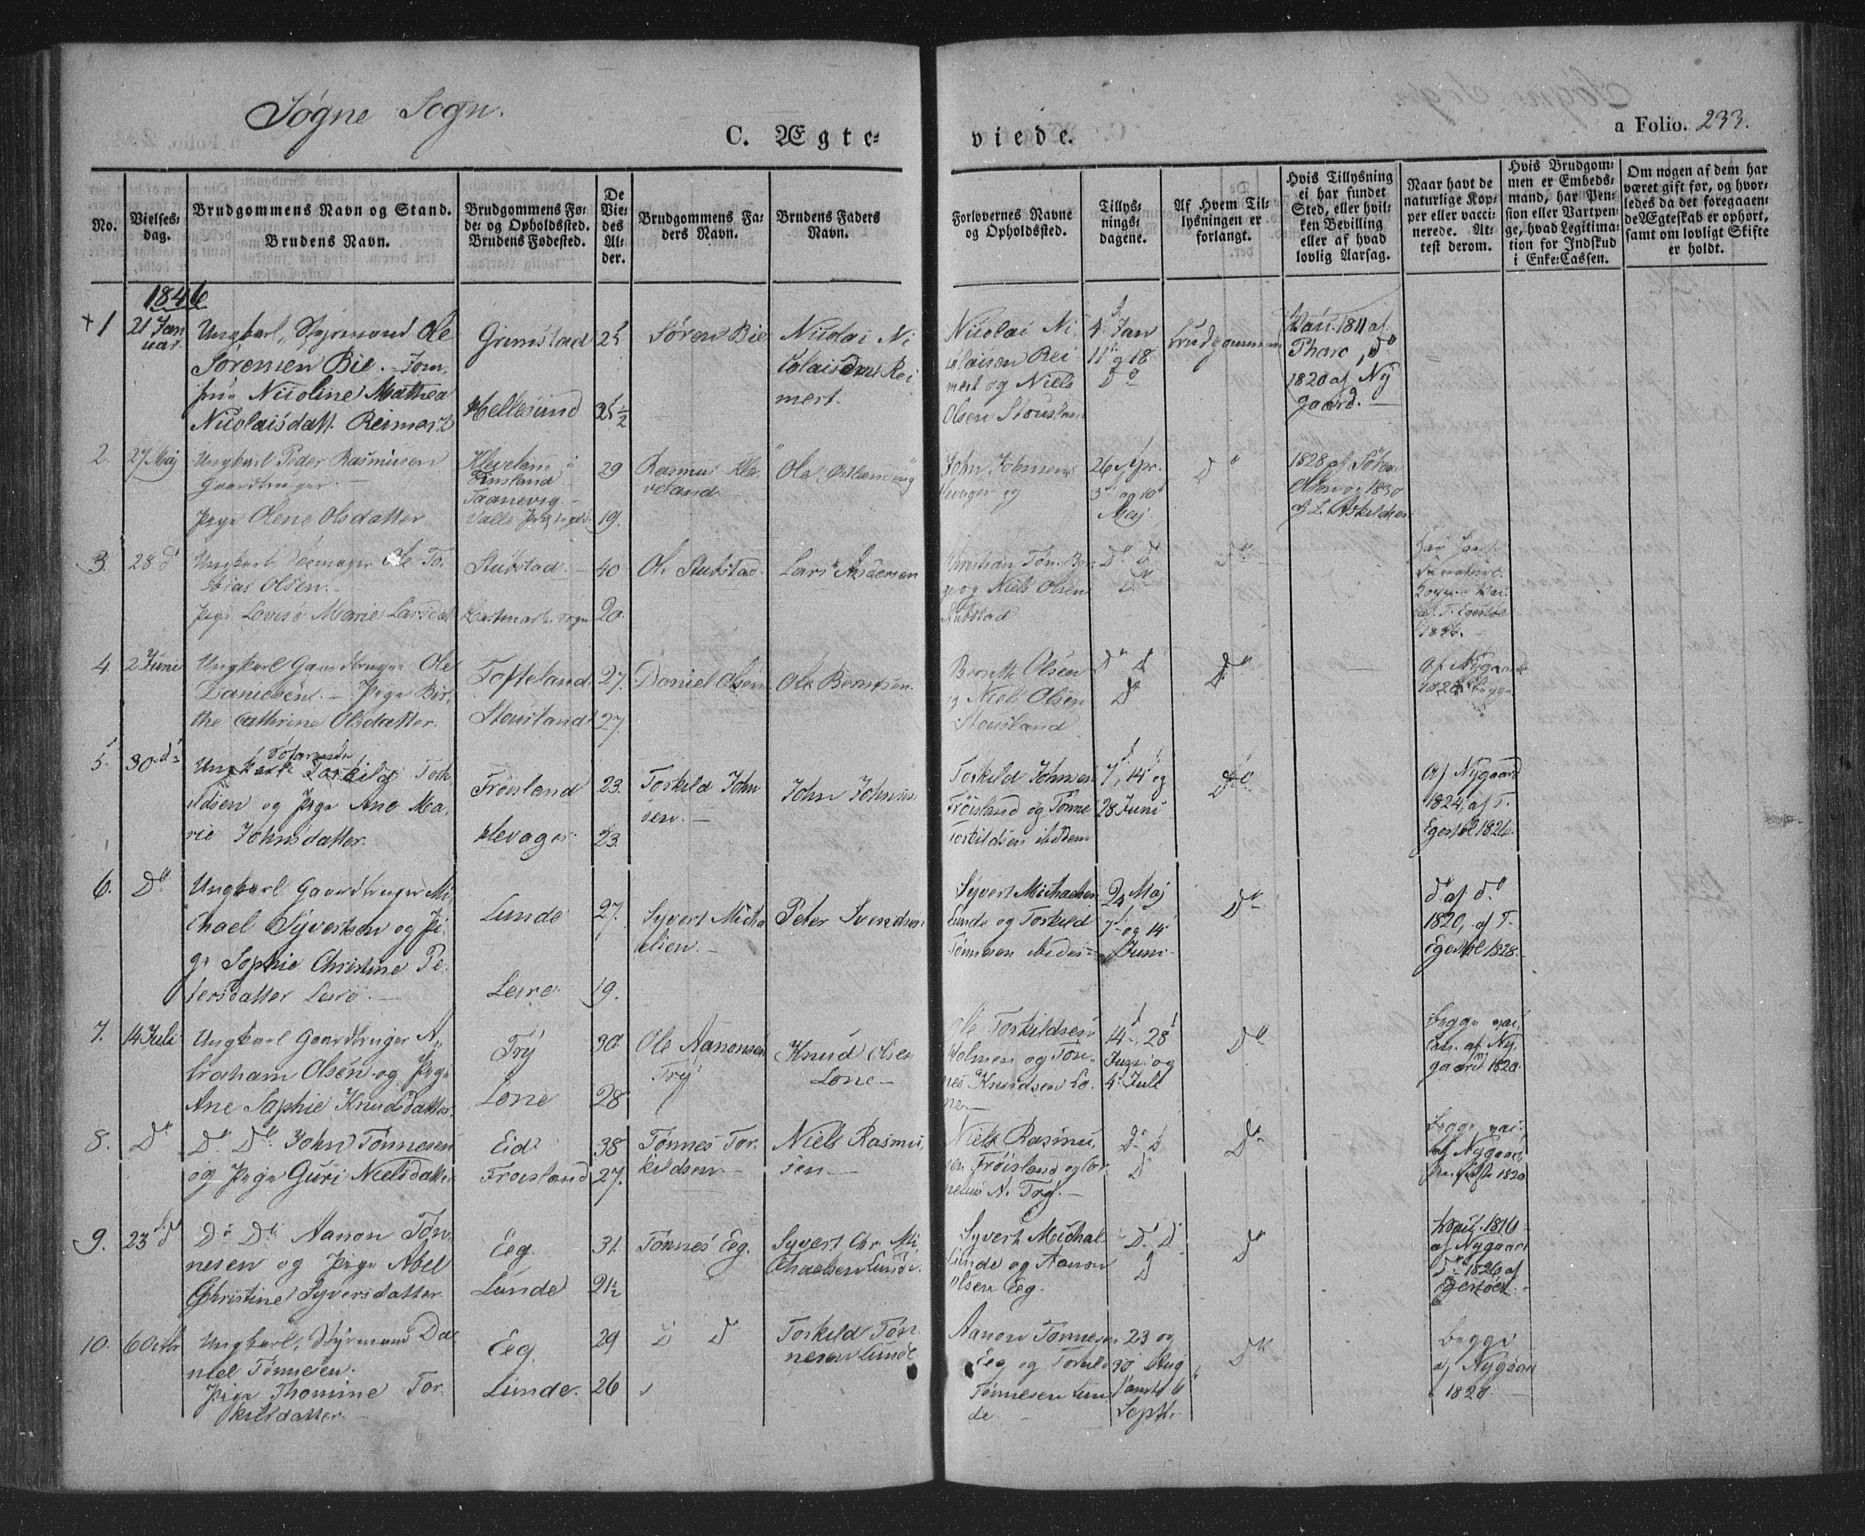 Søgne Sogn.
C. Ægte-
viede.
a Folio. 233.
No.
Vielses-
dag.
Brudgommens Navn og Stand.
Brudens Navn.
Brudgommens Fø-
de- og Opholdssted.
Brudens Fødested.
De
Vie-
des
Al-
der.
Brudgommens Fa-
ders Navn.
Brudens Faders
Navn.
Forlovernes Navne
og Opholdssted.
Tillys-
nings-
dagene.
Af Hvem Til-
lysningen er
forlangt.
Hvis Tillysning
ei har fundet
Sted, eller hvil-
ken Bevilling
eller af hvad
lovlig Aarsag.
Naar havt de
naturlige Kop-
per eller vacci-
nerede. At-
test derom.
Hvis Brudgom-
men er Embeds-
mand, har Pen-
sion eller Vartpen-
ge, hvad Legitima-
tion for Indskud
i Enke-Cassen.
Om nogen af dem har
været gift før, og hvor-
ledes da det foregaaen-
de Ægteskab er ophørt,
samt om lovligt Skifte
er holdt.
1846
+ 1
21 Jan
uar.
Ungkarl, Styrmand Ole
Sørensen Bie. - Jom-
fru Nicoline Mathea
Nicolaisdatt. Reimert
Grimstad
Hellesund
25
25 1/2
Søren Bie
Nicolai Ni
colaisen Rei
mert.
Nicolai Ni
colaisen Rei
mert og Niels
Olsen Stousland
4 Jan
11 og 18
Do
Brudgommen
Vac. 1811 af
Tharo, Do
1820 af Ny
gaard. -
2.
27 Maj
Ungkarl Peder Rasmusen
Gaardbruger. -
Pige Olene Olsdatter
Kleveland i
Taanevig -
29
19.
Rasmus Kle
veland
John Johnsen
Klevager og
26 Apr.
3 og 10
Maj.
Do
1828 af Søren
Olsen og 1830
af L. Askildsen
3.
28 d
Ungkarl Ole To-
bias Olsen. -
Pige Lovise Marie Larsdat
Stubstad. -
Hartmark Sogn
40
20.
Ole Stubstad.
Lars Andersen
Christian Tøn. Ber-
ge og Niels Olsen
Stubstad
Do d
Do
Do
4
2 Juni
Ungkarl Gaardbruger Ole
Danielsen. - Pige Bir-
the Cathrine Olsdatter
Tofteland
Stousland
27.
27
Daniel Olsen
Ole Berntsen
Berntt Olsen
og Niels Olsen
Stousland
Do d
Do
Do
Af Nygaard
1820 begge
5.
30 d
Ungkarl Tørkild Tork
ildsen og Pige Ane Ma-
rie Johnsdatter.
Frøisland
Klevager
23.
23.
Torkild John
sen. -
John Johnsen
Torkild Johnsen
Frøisland og Tønne
Torkildsen ibidem
7, 14 og
28 Juni
Do
Af Nygaard
1824, af T.
Egerbøl 1826.
6.
Do
Ungkarl Gaardbruger Mi-
chael Syvertsen og Pi-
ge Sophie Christine Pe-
tersdatter Leirø. -
Lunde
Leirø
27.
19.
Syvert Micha
elsen. -
Peter Svendsen
Syvert Michaelsen
Lunde og Torkild
Tønnesen
24 Maj
7 og 14
Juni
Do
d af do
1820, af T.
Egerbøl 1828.
7.
14 Juli
Ungkarl Gaardbruger A-
braham Olsen og Pige
Ane Sophie Knudsdatter
Try
Lone
30
28
Ole Aanonsen
Try
Knud Olsen
Lone -
Ole Torkildsen
Holmen og Tøn-
nes Knudsen Lo-
ne -
14, 28
Juni og
4 Juli
Do
begge vac-
cin. af Ny-
gaard 1820.
8.
Do
Do Do John Tønnesen
og Pige Guri Nielsdatter
Eid
Frøisland
38
27.
Tønnes Tor-
kildsen -
Niels Rasmu-
sen. -
Niels Rasmu-
sen Frøisland og Cor-
nelius N. Try. -
Do d
Do
Do
begge vac-
af Nygaard
1820
9.
23 d
Do Do Aanon Tøn-
nesen og Pige Abel
Christine Syversdatter.
Eeg.
Lunde
31.
21 1/2
Tønnes Eeg.
Syvert Chr. Mi-
chaelsen Lunde.
Syvert Michal
Lunde og Aanon
Olsen Eeg.
Do D
Do
Do
Vac. 1816
af Nygaard
Do 1826 af
Egerbøl. -
10.
6 Octbr
Ungkarl, Styrmand Da-
niel Tønnesen.
Pige Thomine Tor-
kildsdatter. -
Eeg
Lunde.
29
26
D Do
Torkild Tøn-
nesen Lunde
Aanon Tønnesen
Eeg og Torkild
Tønnesen Lun-
de
23 og
30 Aug
samt 6
Septbr.
Do
begge
af Nygaard
1820.